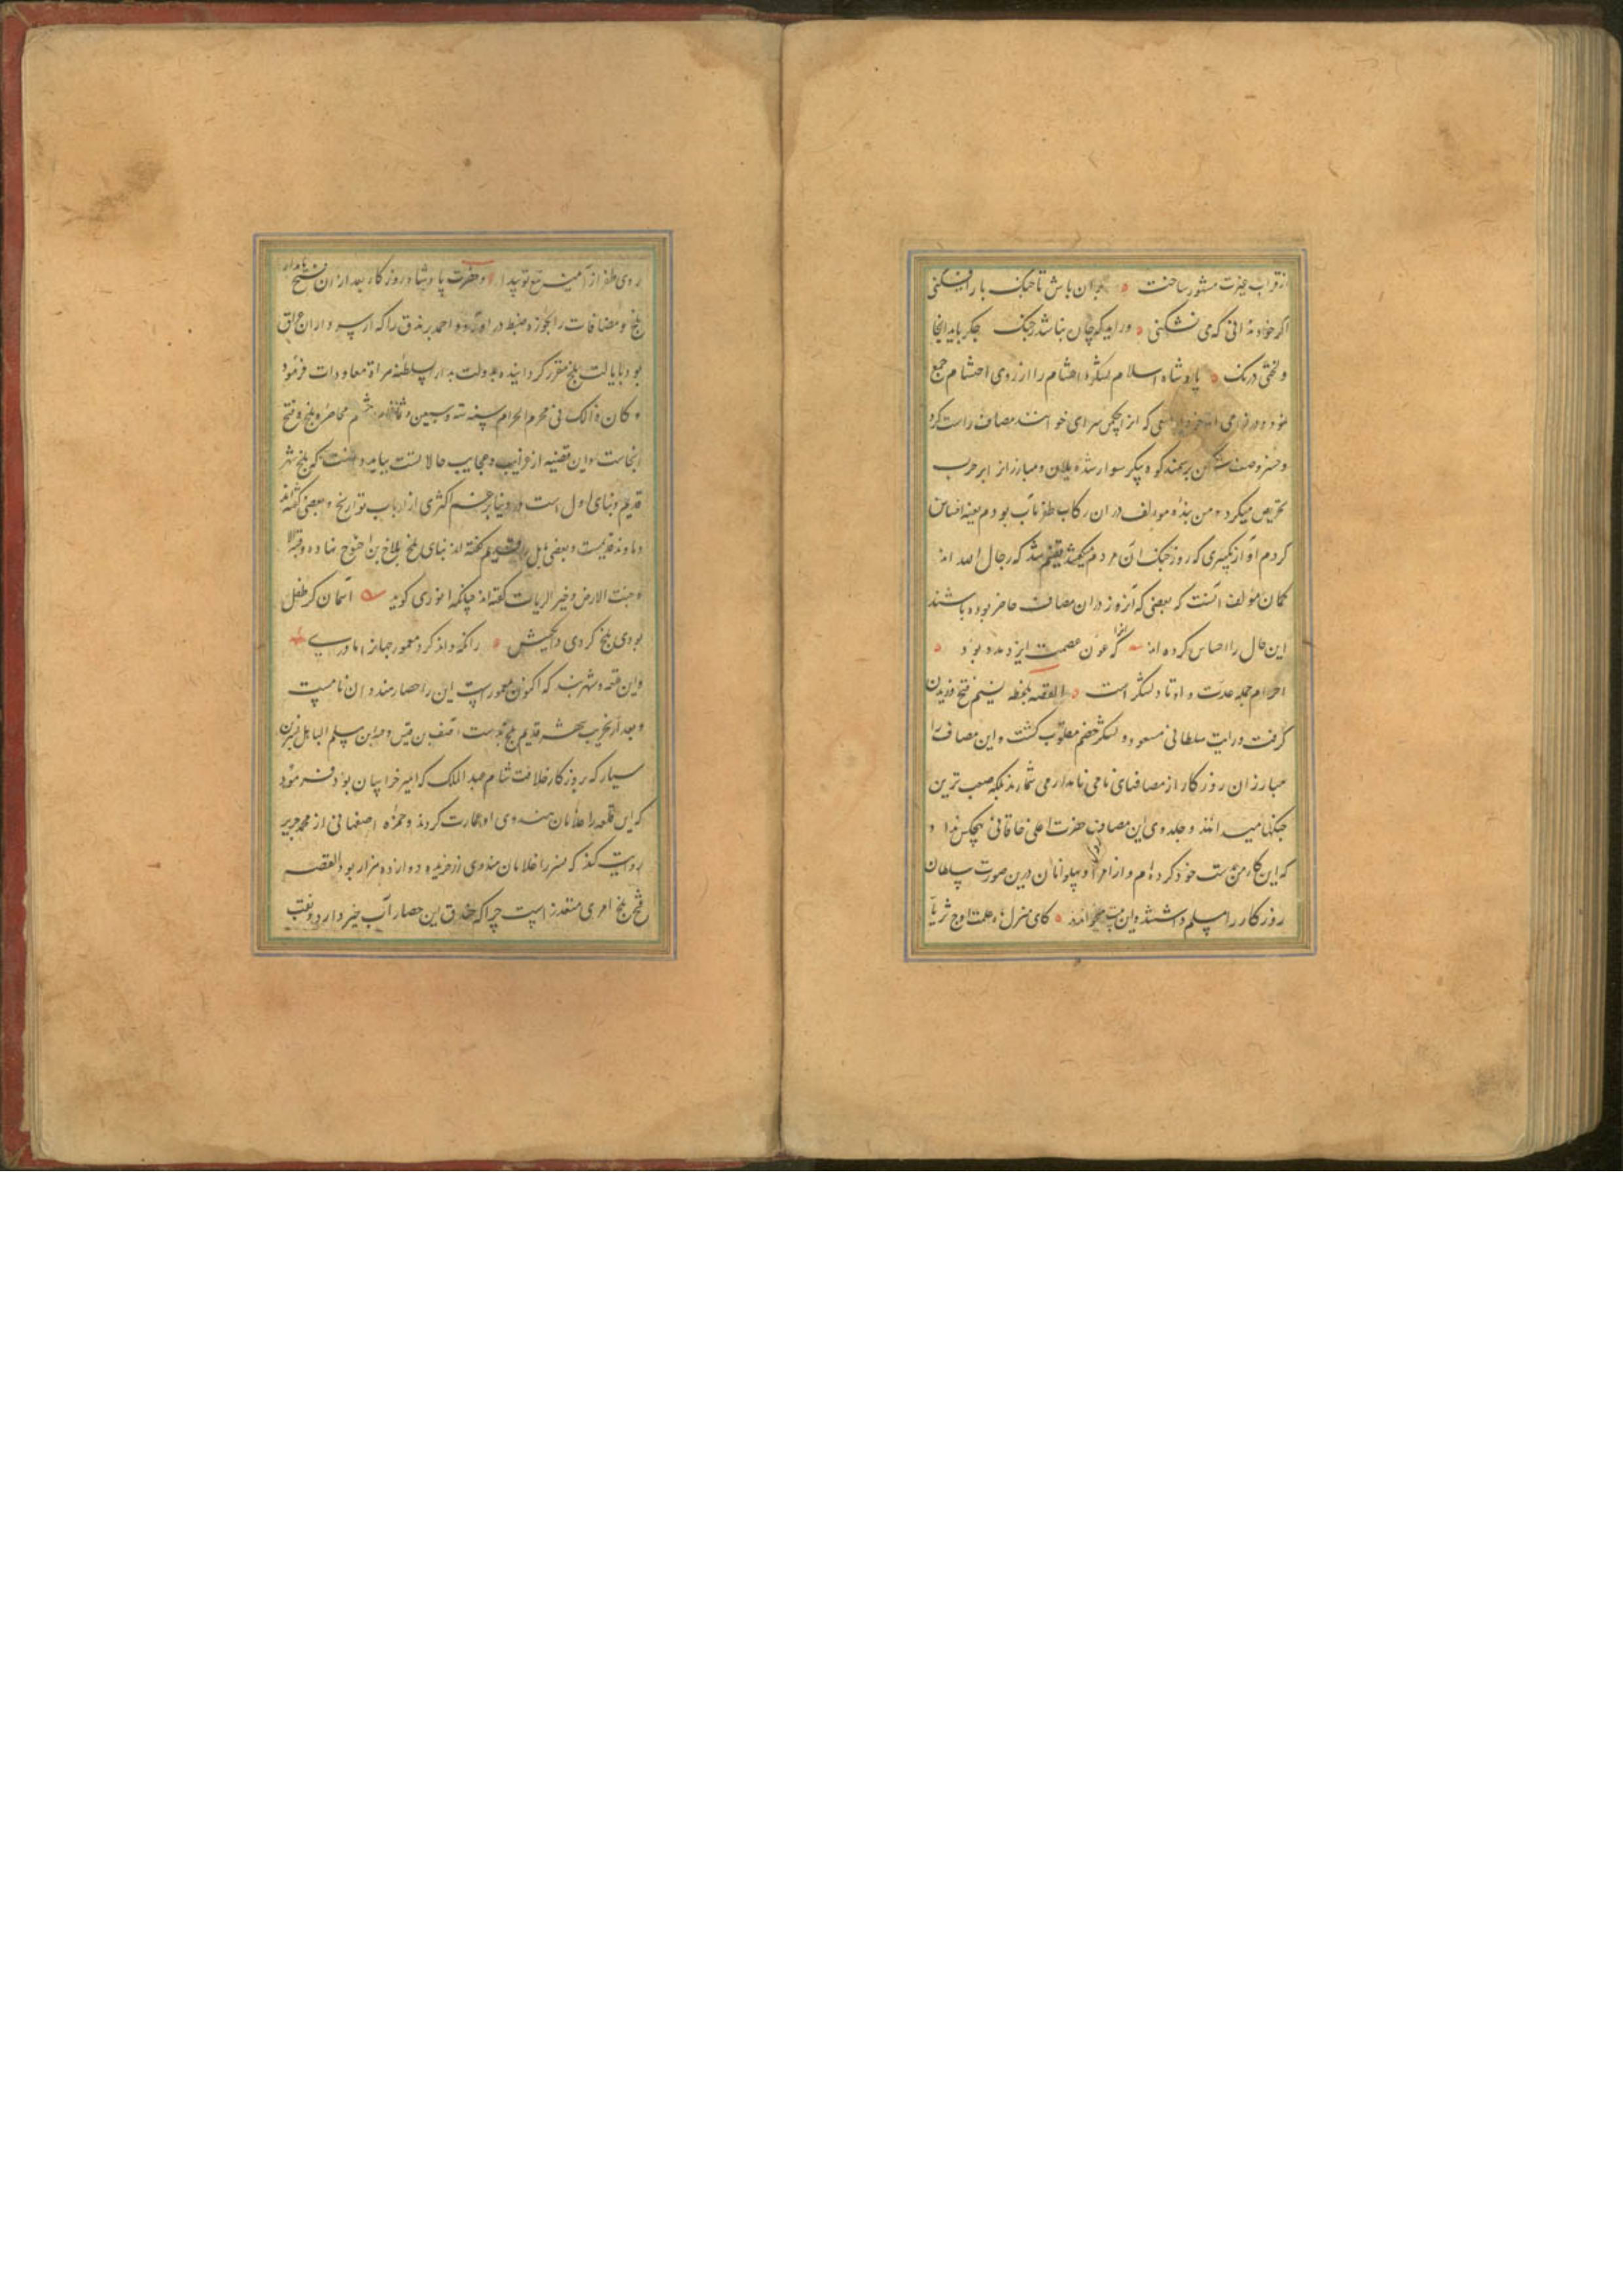 از قراب حیرت مشور ساخت بران باش تا جنک با رافکنی
اکر خود ندانی که می نشکنی ورایدکه چان نباشد بجنک جکر باید انجا
و لختی درنک پادشاه اسلام لشکر و احشام را از روی احتشام جمع
نمود و در که از اچکس سرای خوانند مصاف راست کرد
و خسرو صف شکن برسمند کوه پیکر سوار شده یلان و مبارزان را بر حرب
تحریص میکرد و من بنده مولف در ان رکاب ظفر ماب بودم بعینه احساس
کردم اواز تکبیری که روز جنک ان مردم میکشید یقینم شد که رجال الله اند
کمان مولف انست که بعضی که آنروز دران مصاف حاضر بوده باشند
این حال را احساس کرده اند کر عون عصمت ایزد مدد بود
اجرام جمله عدت و اوتاد لشکر است القصه بلحظه نسیم فتح وزیدن
کرفت و رایت سلطانی مسعود و لشکر خصم مغلوب کشت و این مصاف را
مبارزان روزکار از مصافهای نامی نامدار می شمارند بلکه صعب ترین
جنکها میدانند و جلدوی این مصاف حضرت اعلی خاقانی بهیچکس نداد و
که این کار من بدست خود کرده ام و از امرا و پهلوانان درین صورت سلطان
روزکار را مسلم داشتند و این بیت میخوانند کای منزل همت اوج ثریا
روی ظفر از آینه تیغ تو پیدا و حضرت پادشاه روزکار بعد از ان فتح نامدار
بلخ و مضافات را بحوزه ضبط در اورد و احمد رندق را که از سرداران عراق
بود بایالت بلخ مقرر کردانیده بدولت بدار السلطنه هراة معاودات فرمود
و کان ذالک فی محرم الحرام سنه سته و سبعین و ثمانمایه محاصره بلخ و فتح
انجاست و این قضیه از غرایب و عجایب حالا تست بباید دانست که بلخ شهر
قدیم و بنای اول است در دنیا بزعم اکثری از ارباب تواریخ و بعضی کفته اند
دماوند قدیمست و بعضی بابل را قدیم کفته اند بنای بلخ بلاخ بن اخنوخ نهاده و قبة
و جنت الارض و خیر الریات کفته اند چنانکه انوری کوید اسمان کر طفل
بودی بلخ کردی دایکیش زانکه داند کرد معمور جهانرا مادری
و این قلعه و شهربند که اکنون معمور است این را حصار هندوان نامست
و بعد از تخریب شهر قدیم بلخ احنف بن قیس و مسلم الباهلی نصر بن
سیار که بروزکار خلافت هشام عبد الملک که امیر خراسان بود فرمود
که این قلعه را غلامان هندوی او عمارت کردند و حمزه اصفهانی از محمد جریر
روایت کند که نصر را غلامان هندوی زرخریده دوازده هزار بود القصه
فتح بلخ امری متعذر است چرا که خندق این حصار آب خیز دارد و نقب